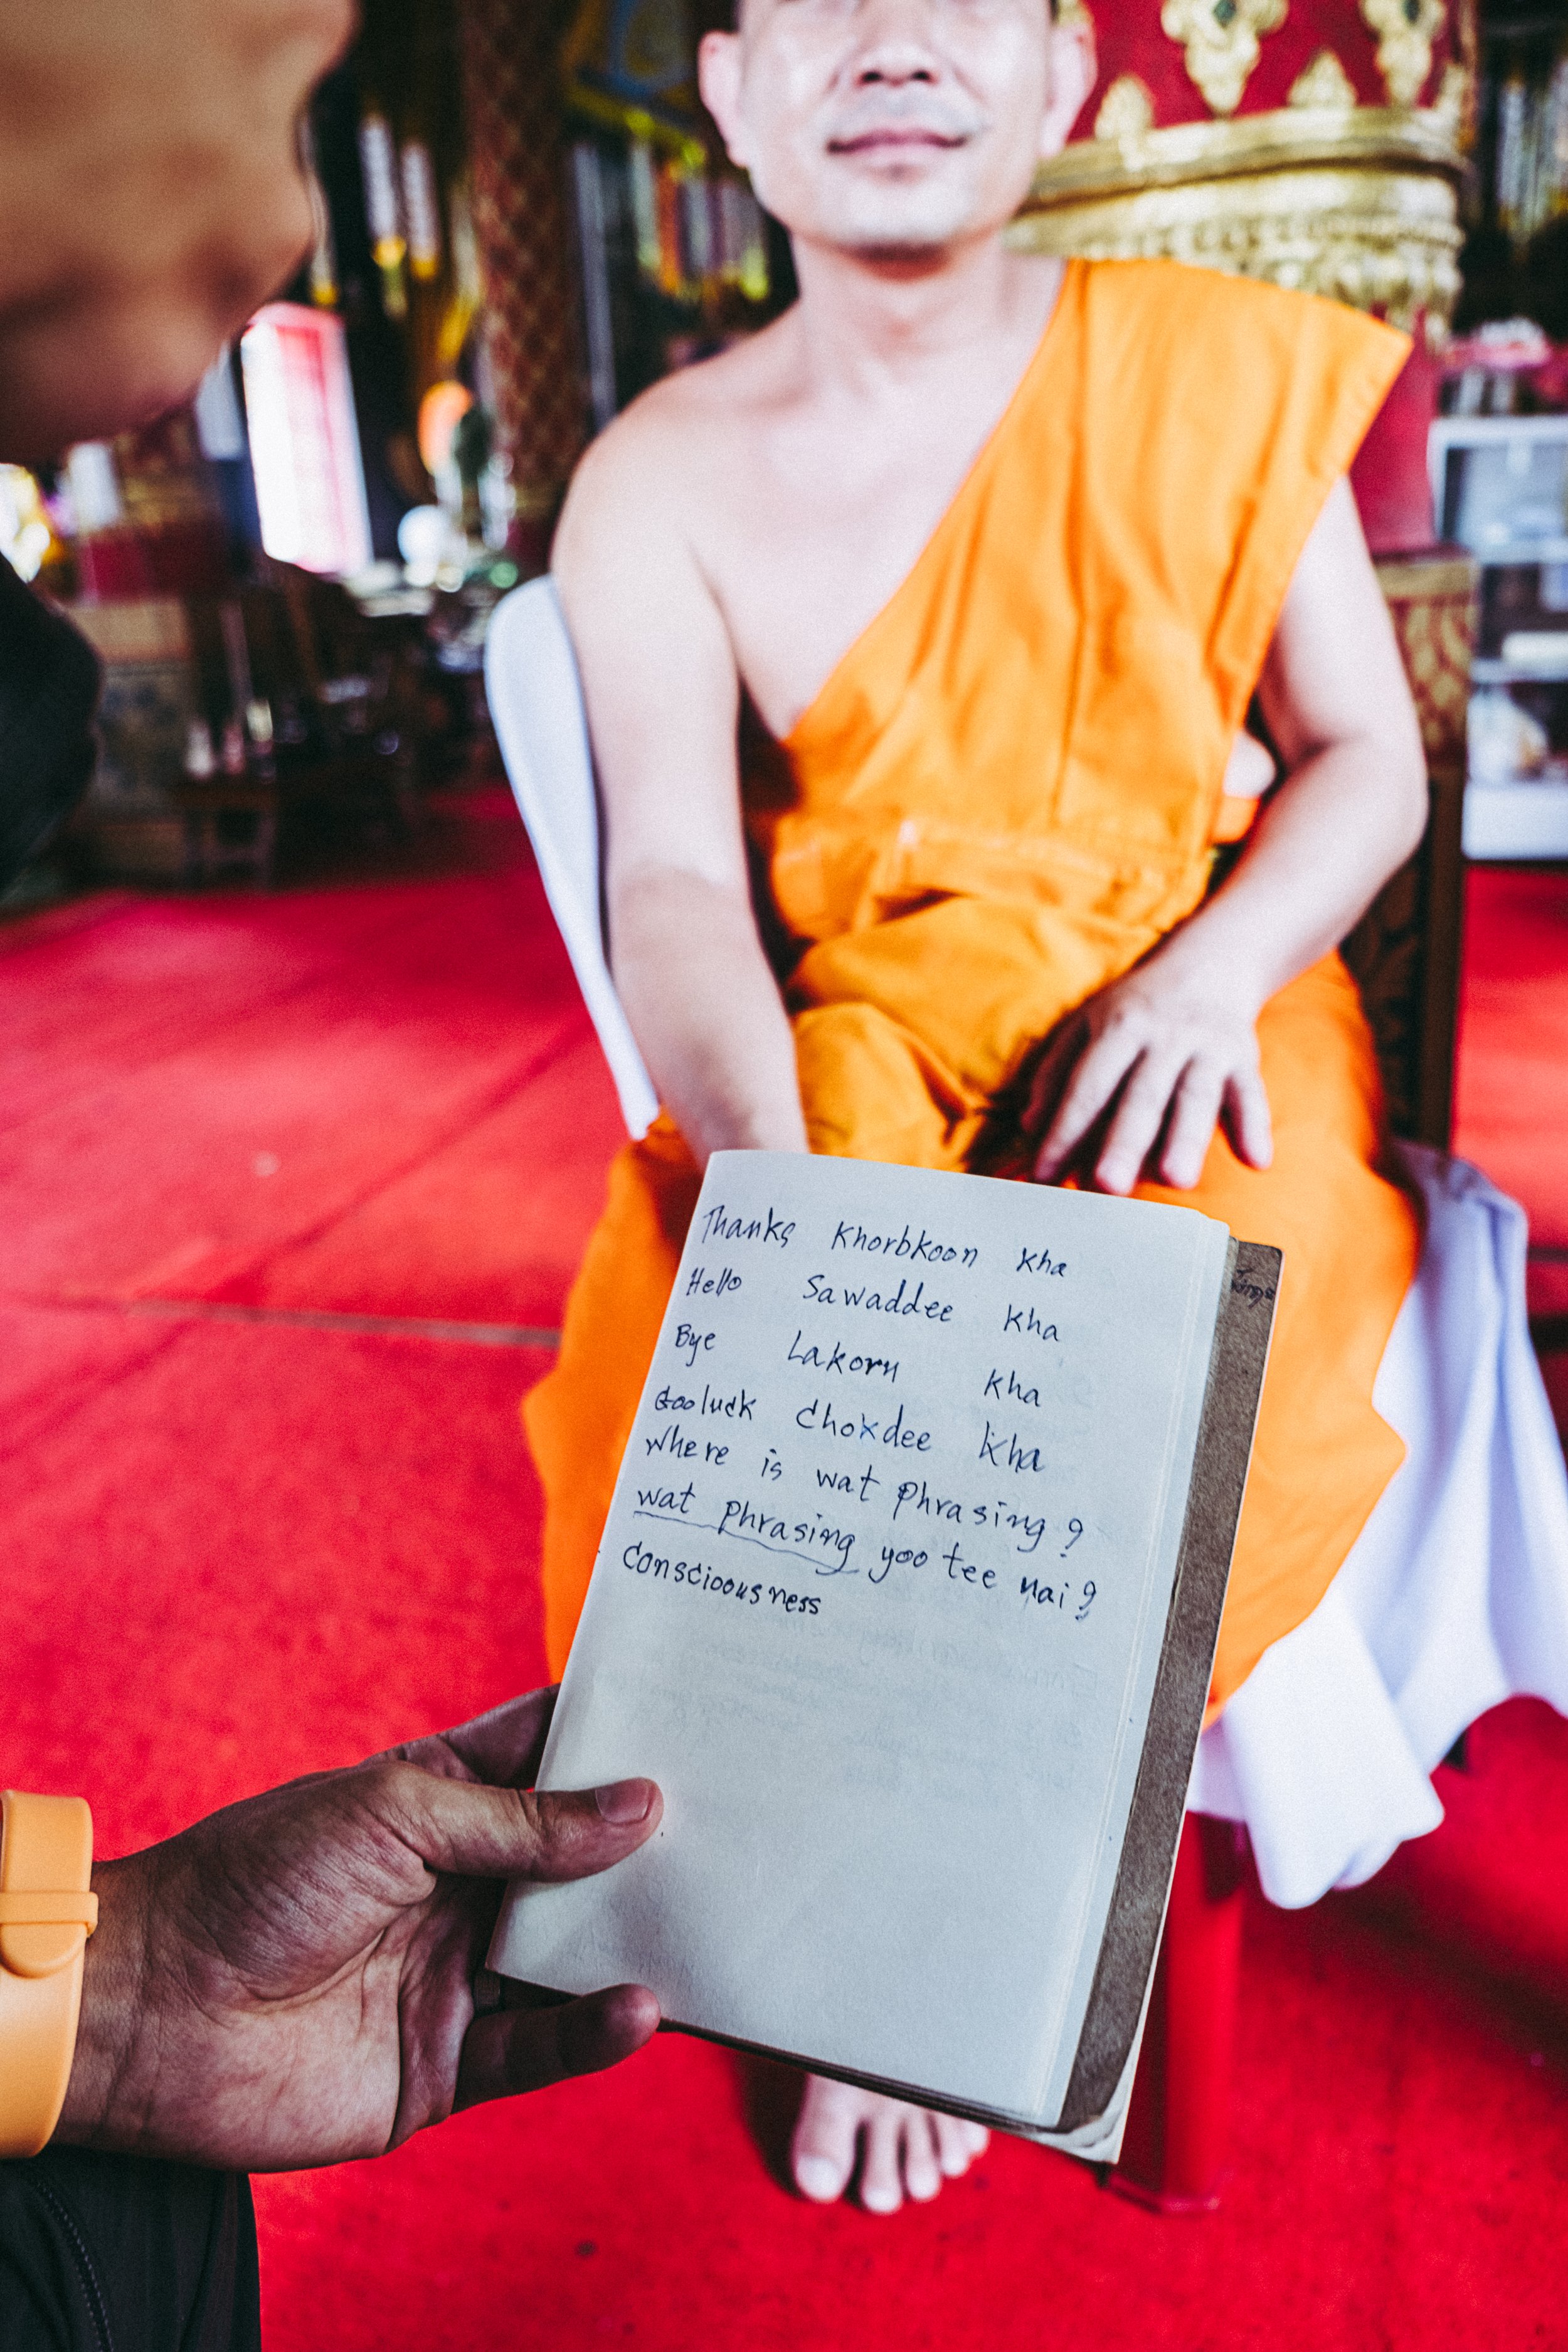 Thanks Khorbkoon Kha
Hello Sawaddee Kha
Bye Lakorn Kha
Gooluck Chokdee Kha
Where is wat phrasing?
wat phrasing yoo tee nai?
Conscioousness